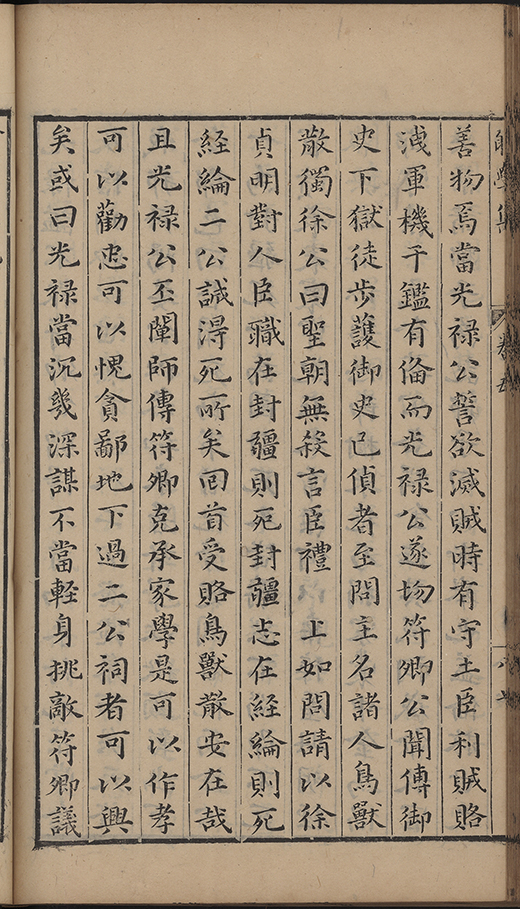 善物焉當光禄公誓欲滅賊時有守土臣利賊賂
洩軍機千鑑有俻而光禄公遂歾符卿公聞傳御
史下獄徒步護御史已偵者至問主名諸人鳥獸
散獨徐公曰聖朝無殺言臣禮 上如問請以徐
貞明對人臣職在封疆則死封疆志在經綸則死
經綸二公誠得死所矣回首受賂鳥獸散安在哉
且光禄公丕闡師傳符卿克承家學是可以作孝
可以勸忠可以愧貪鄙地下過二公祠者可以興
矣或曰光禄當沉幾深謀不當輕身挑敵符卿議